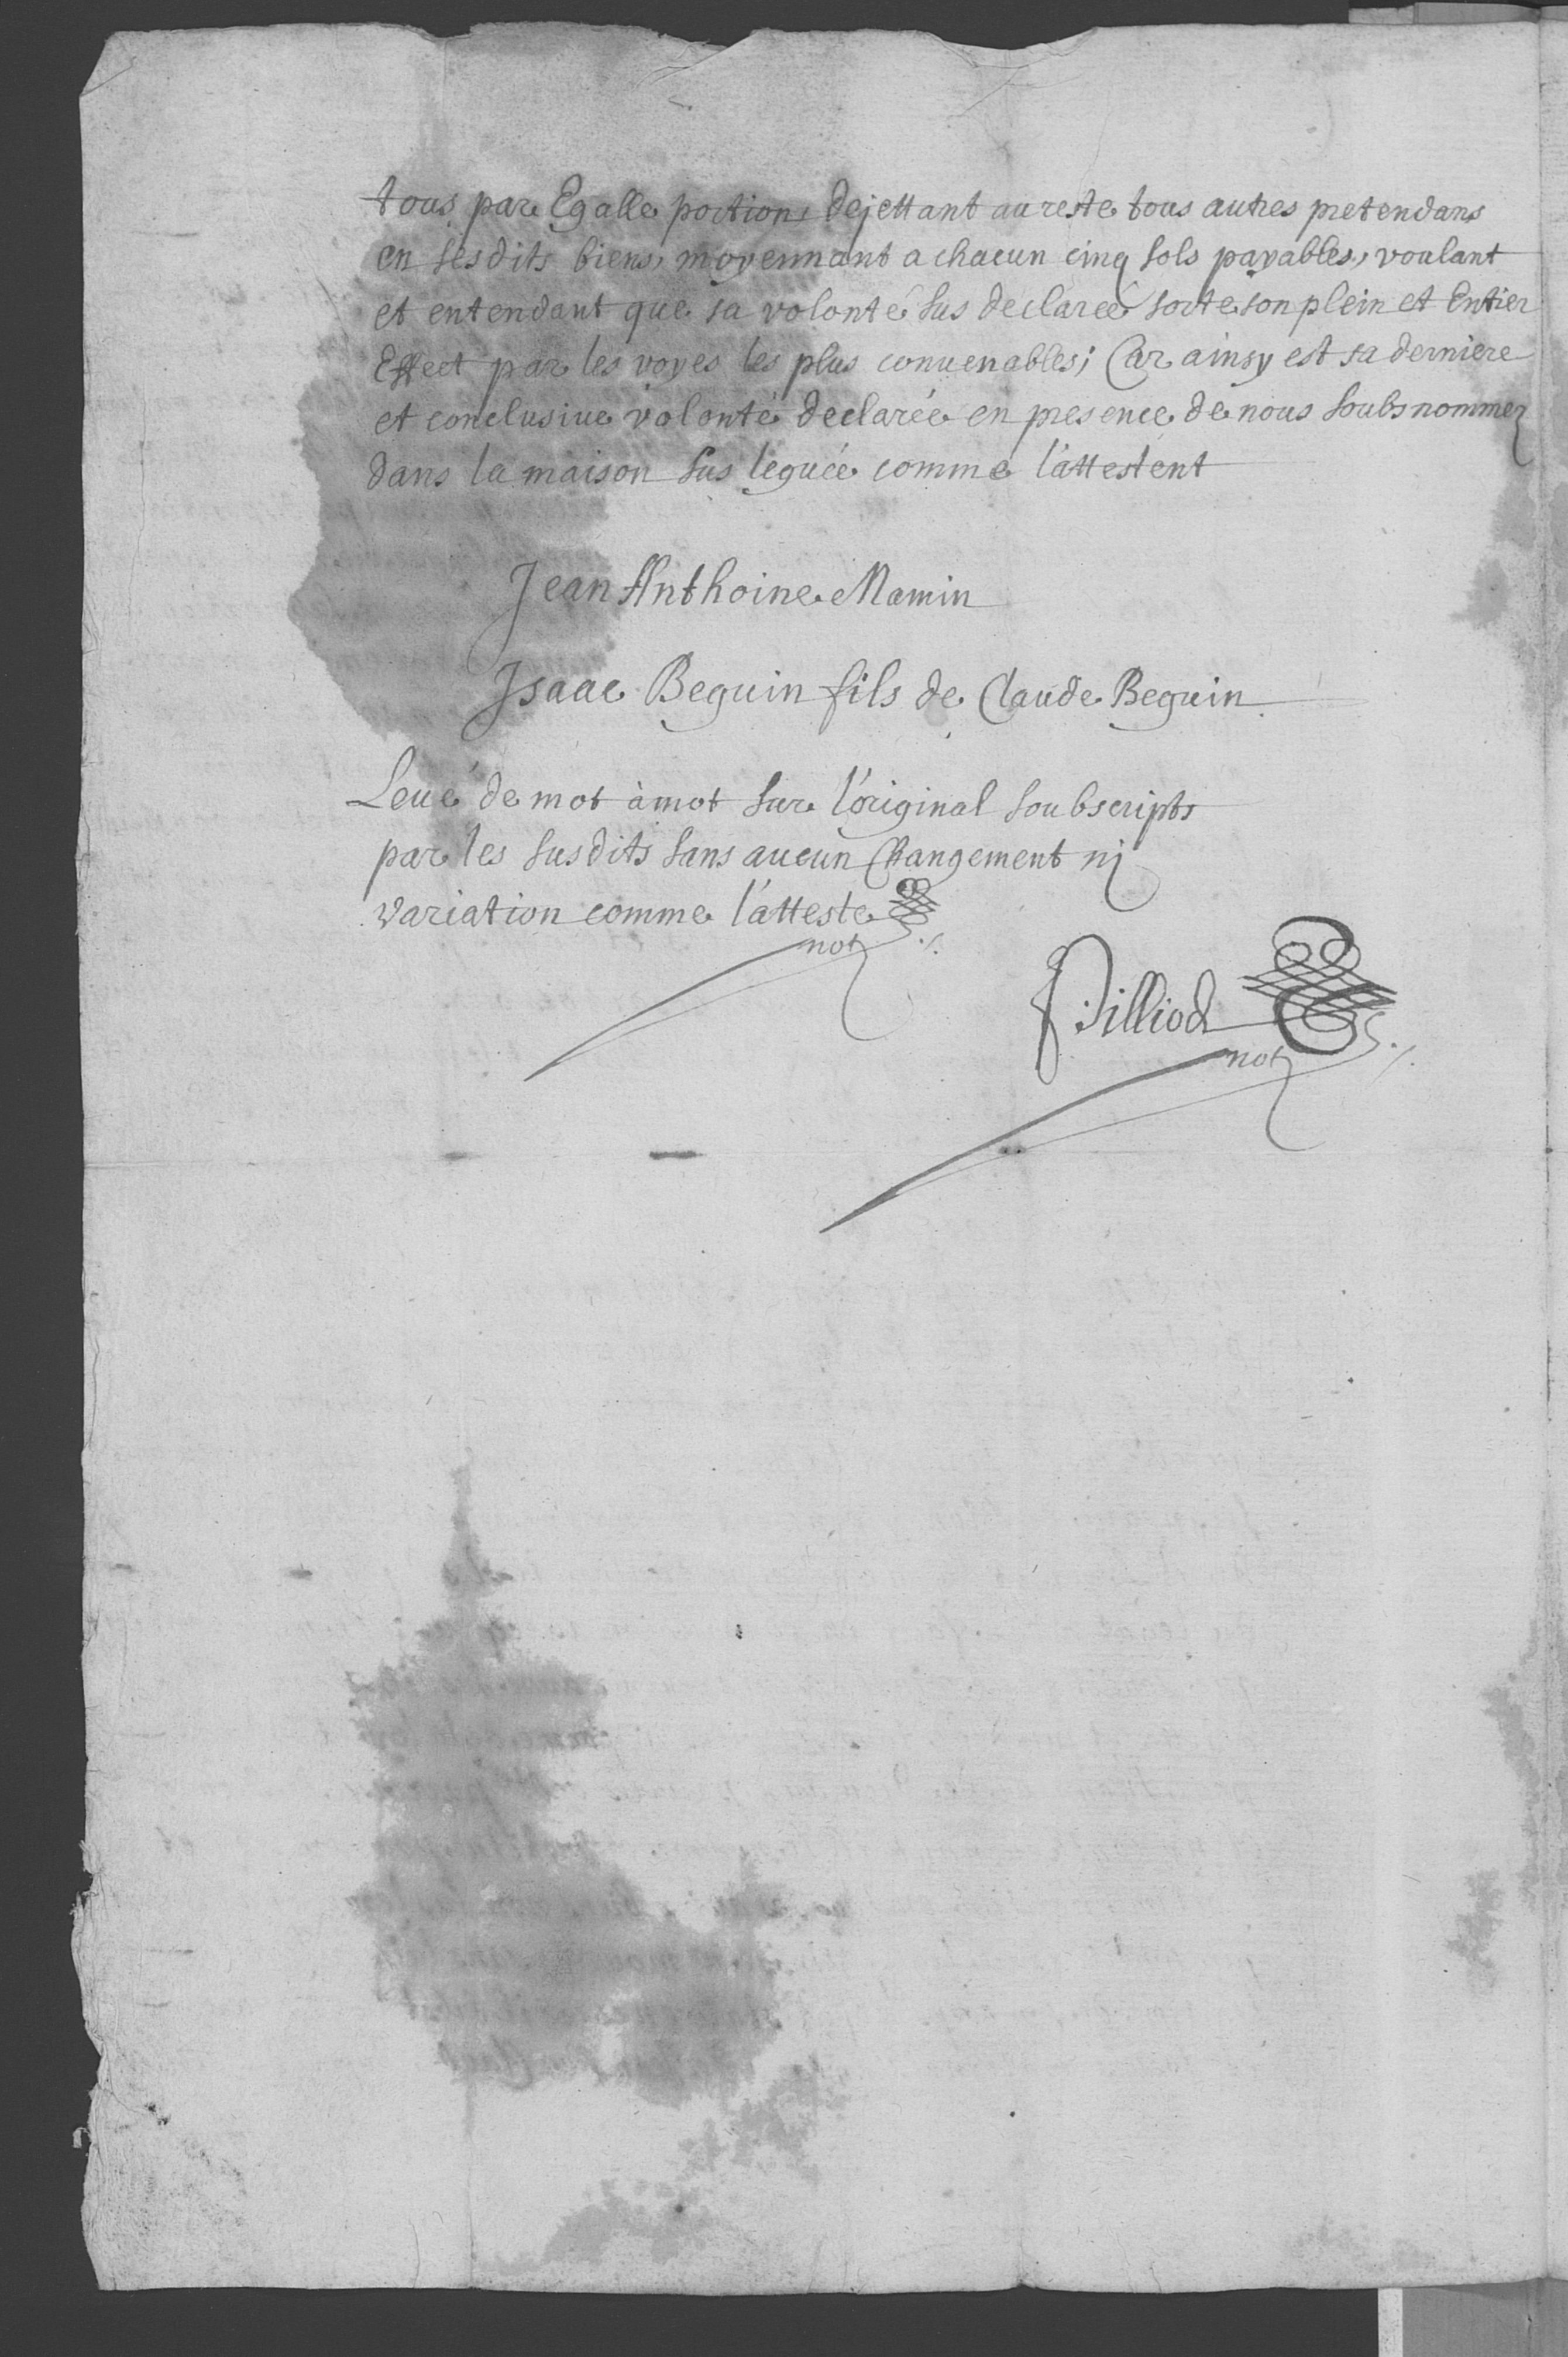 tous par Egalle portion, dejettant au reste tous autres pretendans
en sesdits biens, moyennant a chacun cinq sols payables, voulant
et entendant que sa volonté sus declarée sorte son plein et Entier
Effect par les voyes les plus conuenables; Car ainsy est sa derniere
et conclusiue volonté declarée en presence de nous soubsnommez
dans la maison sus leguée comme l'attestent
Jean Anthoine Mamin
Isaac Beguin fils de Claude Beguin
Leué de mot à mot sur l'original soubscripts
par les susdits sans aucun Changement ni
variation comme l'atteste
not
Pilliod
not